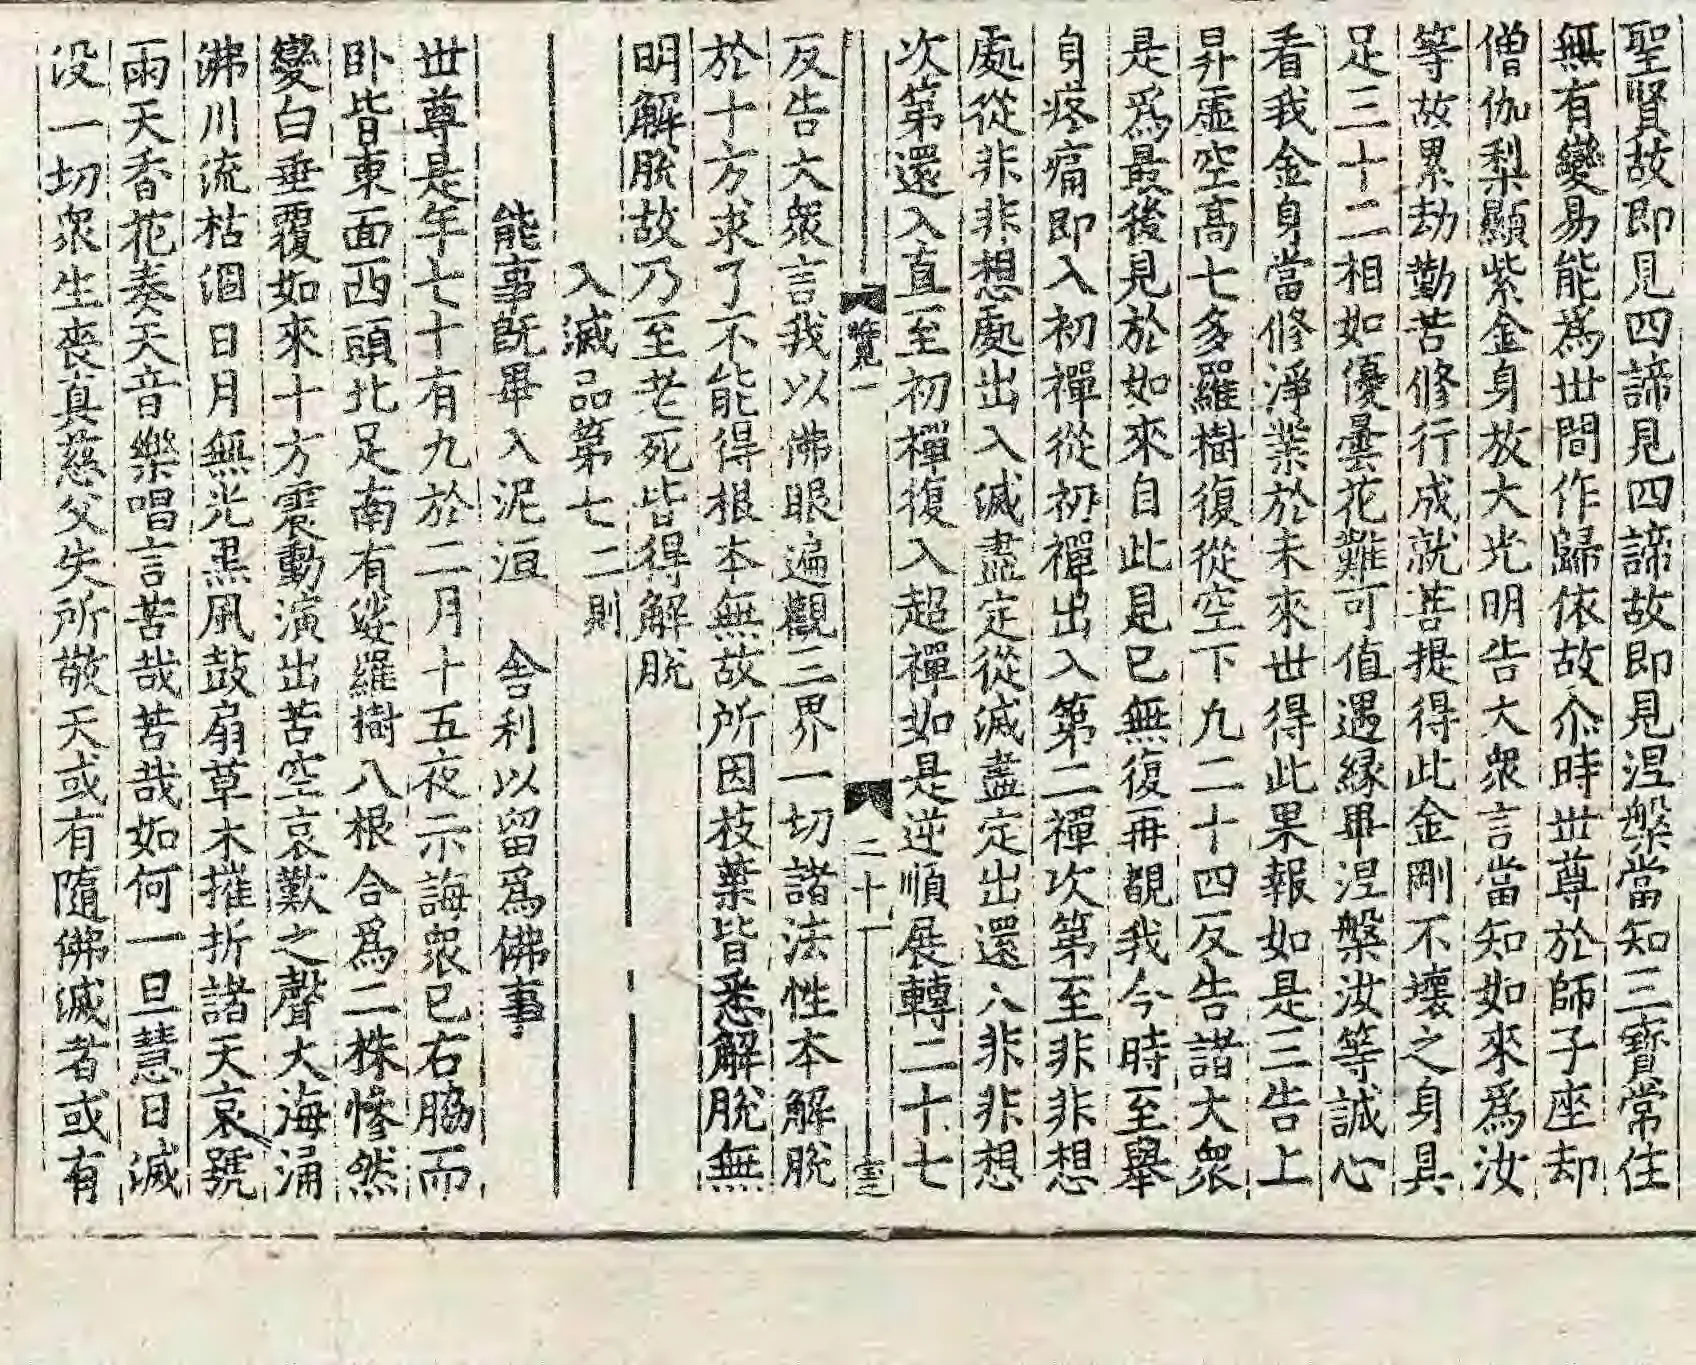 聖賢故即見四諦見四諦故即見涅槃當知三寶常住
無有變易能爲世間作歸依故尒時世尊於師子座却
僧伽梨顯紫金身放大光明告大衆言當知如來爲汝
等故累劫勤苦修行成就菩提得此金剛不壞之身具
足三十二相如優曇花難可值遇緣畢涅槃汝等誠心
看我金身當修淨業於未來世得此果報如是三告上
昇虛空高七多羅樹復從空下九二十四反告諸大衆
是爲最後見於如來自此見已無復再覩我今時至舉
身疼痛即入初禪從初禪出入第二禪次第至非非想
處從非非想處出入滅盡定從滅盡定出還入非非想
次第還入直至初禪復入超禪如是逆順展轉二十七
覽一 二十一
反告大衆言我以佛眼遍觀三界一切諸法性本解脫
於十方求了不能得根本無故所因枝葉皆悉解脫無
明解脫故乃至老死皆得解脫
入滅品第七二則
能事既畢入泥洹 舍利以留爲佛事
世尊是年七十有九於二月十五夜示誨衆已右脇而
卧皆東面西頭北足南有娑羅樹八根合爲二株慘然
變白垂覆如來十方震動演出苦空哀歎之聲大海涌
沸川流枯涸日月無光黑風鼓扇草木摧折諸天哀號
雨天香花奏天音樂唱言苦哉苦哉如何一旦慧日滅
没一切衆生喪真慈父失所敬天或有隨佛滅者或有